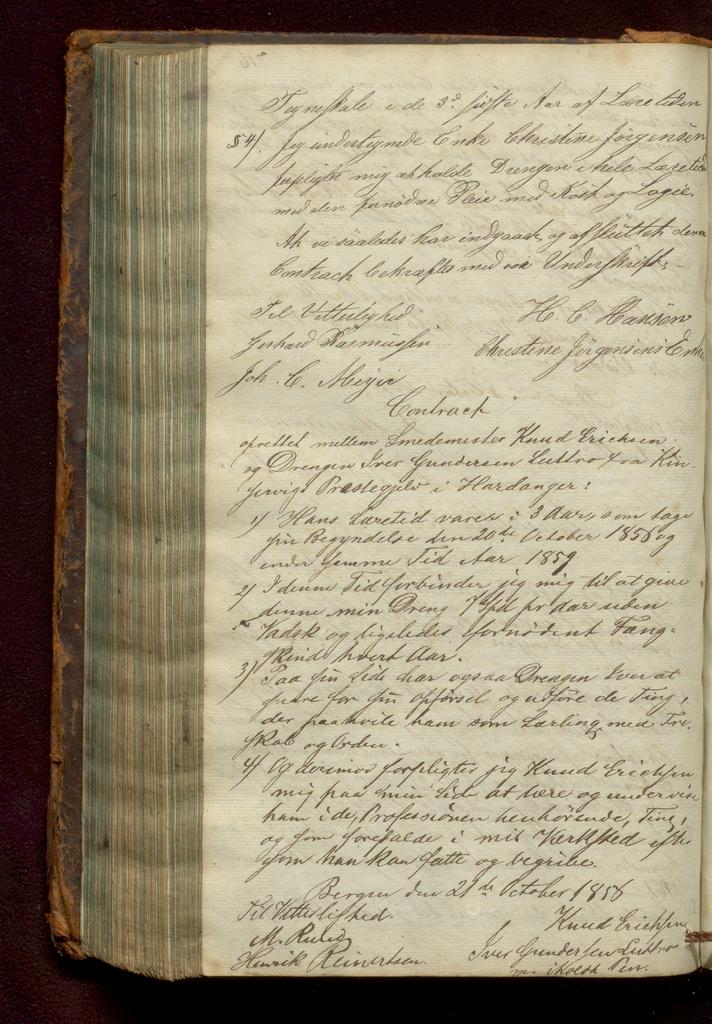 i de 3de sidste Aar af Læretiden
§ 4). Jeg undertegnede Enke Christine Jørgensen
forpligter mig at holde Drengen i hele Læretid
med den fornødne Pleie med Kost og Logie.
At vi saaledes har indgaaet og afsluttet denne
Contract bekræftes med vor Underskrift,
Til Vitterlighed H. C. Hansen
Gerhard Rasmussen Christine Jørgensens Enke
Joh. C. Meyer
Contract
oprettet mellem Smedemester Knud Erichsen
og Drengen Iver Gundersen Luttro fra Kin-
servigs Præstegjeld i Hardanger:
1) Hans Læretid varer i 3 Aar, som tage
sin Begyndelse den 20de October 1856 og
ender samme Tid Aar 1859
2) I denne Tid forbinder jeg mig til at give
denne min Dreng 7 Spd pr Aar uden
Vadsk og ligeledes fornødent Fang-
skind hvert Aar.
3) Paa sin Side har ogsaa Drengen Iver at
svare for sin Opførsel og udføre de Ting,
der paahvile ham som Lærling med Tro-
skab og Orden.
4) Og derimod forpligter jeg Knud Erichsen
mig paa min Side at lære og undervise
ham i de, Professionen henhørende, Ting,
og som forefalde i mit Værksted efter
som han kan fatte og begribe.
Bergen den 21de October 1856
Til Vitterlighed. Knud Erichsen
M. Iver Gundersen Luttro
Henrik Reinertsen. m. iholdt Pen.